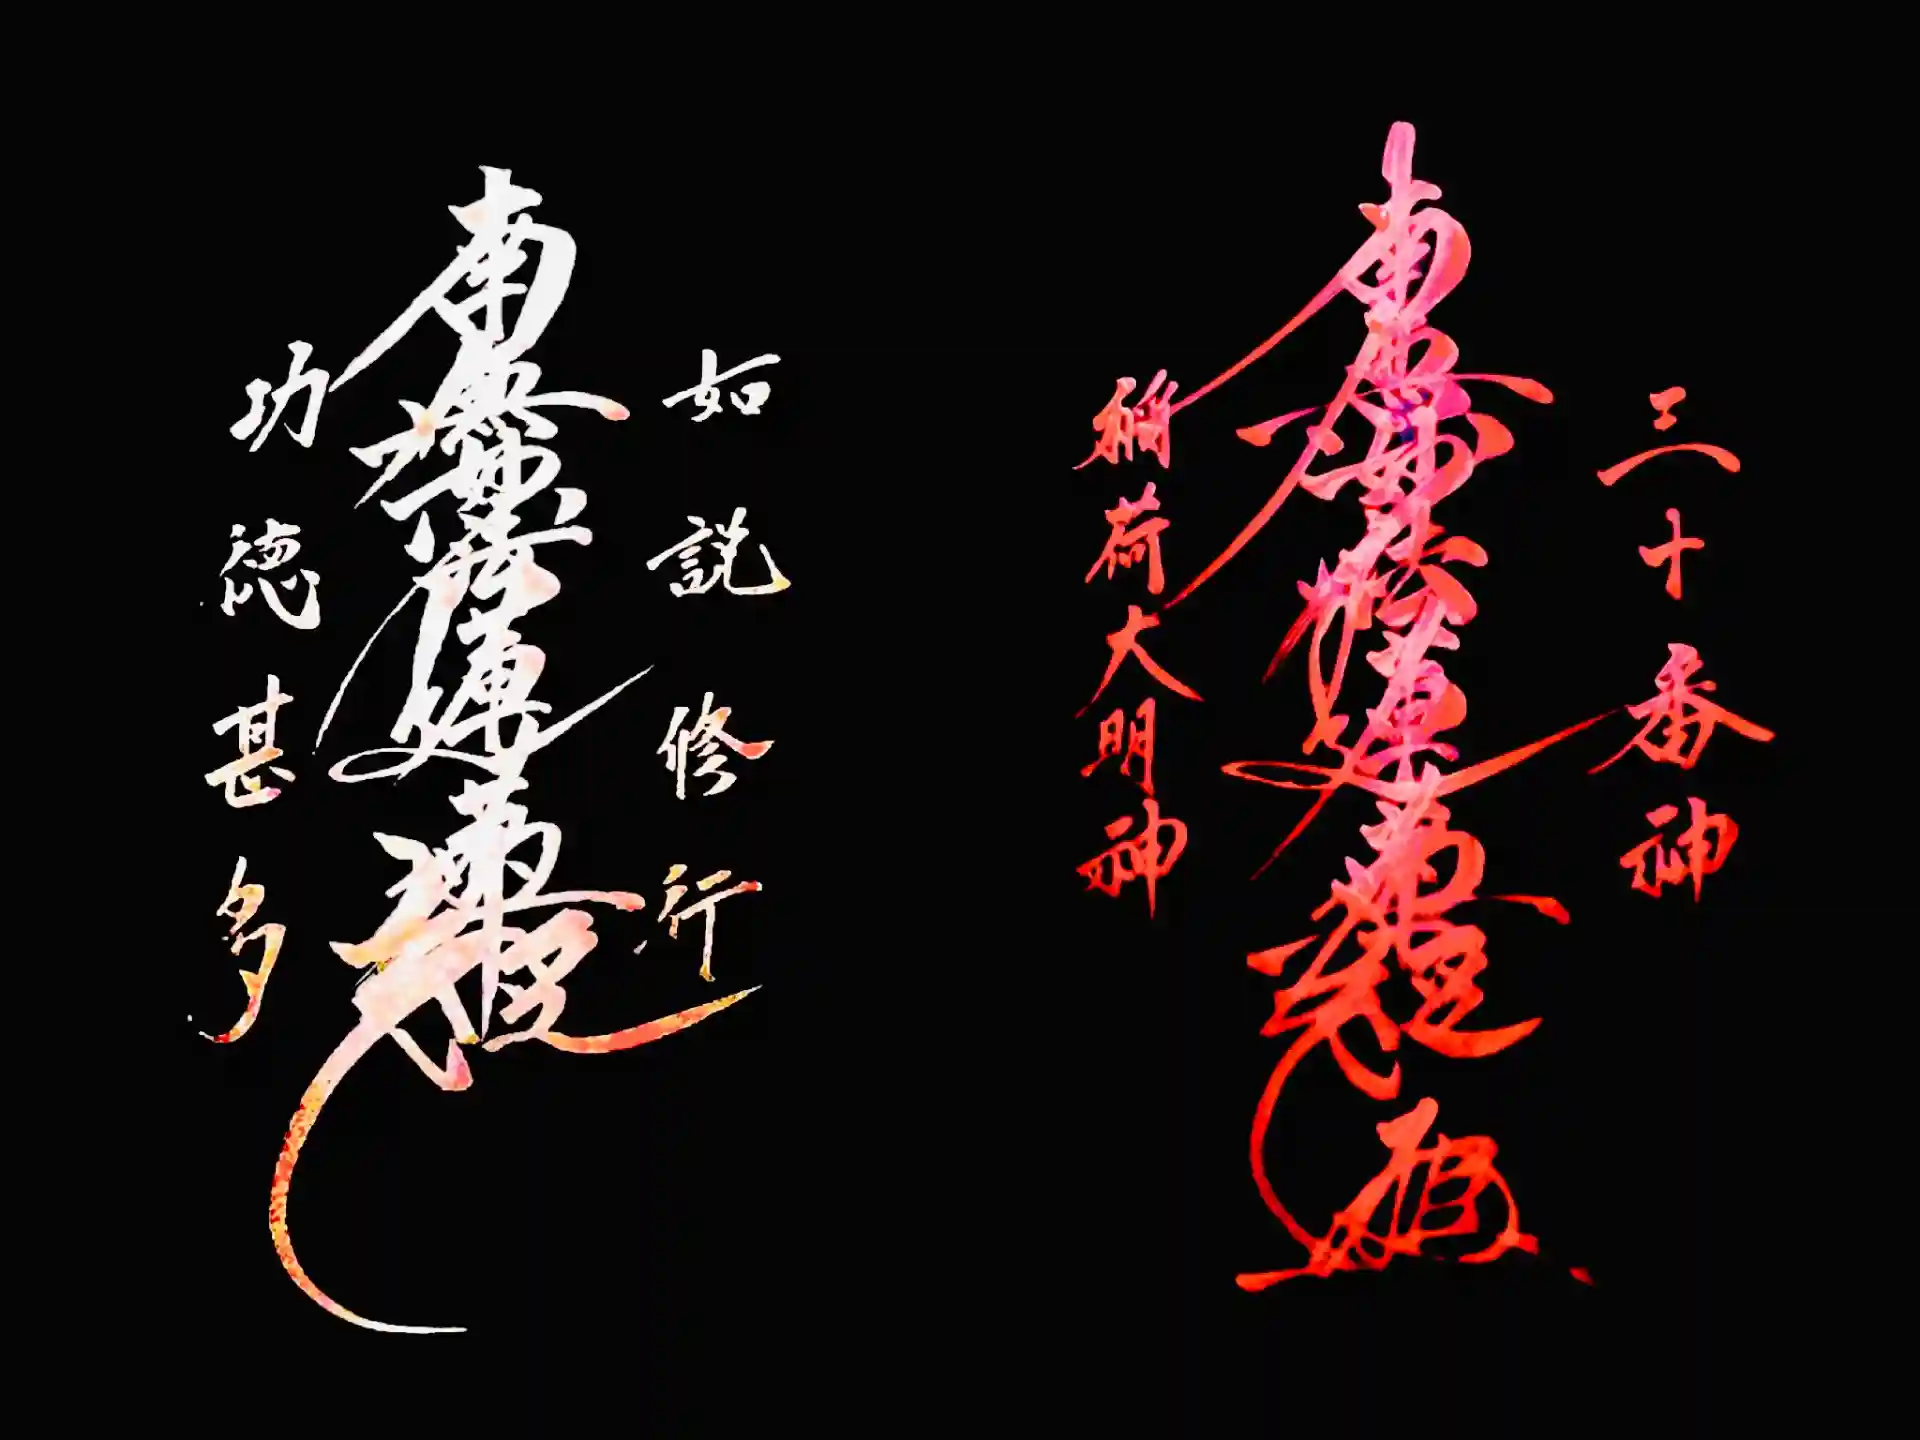 如説修行
南無妙法蓮華経
功徳甚多
三十番神
南無妙法蓮華経
稲荷大明神